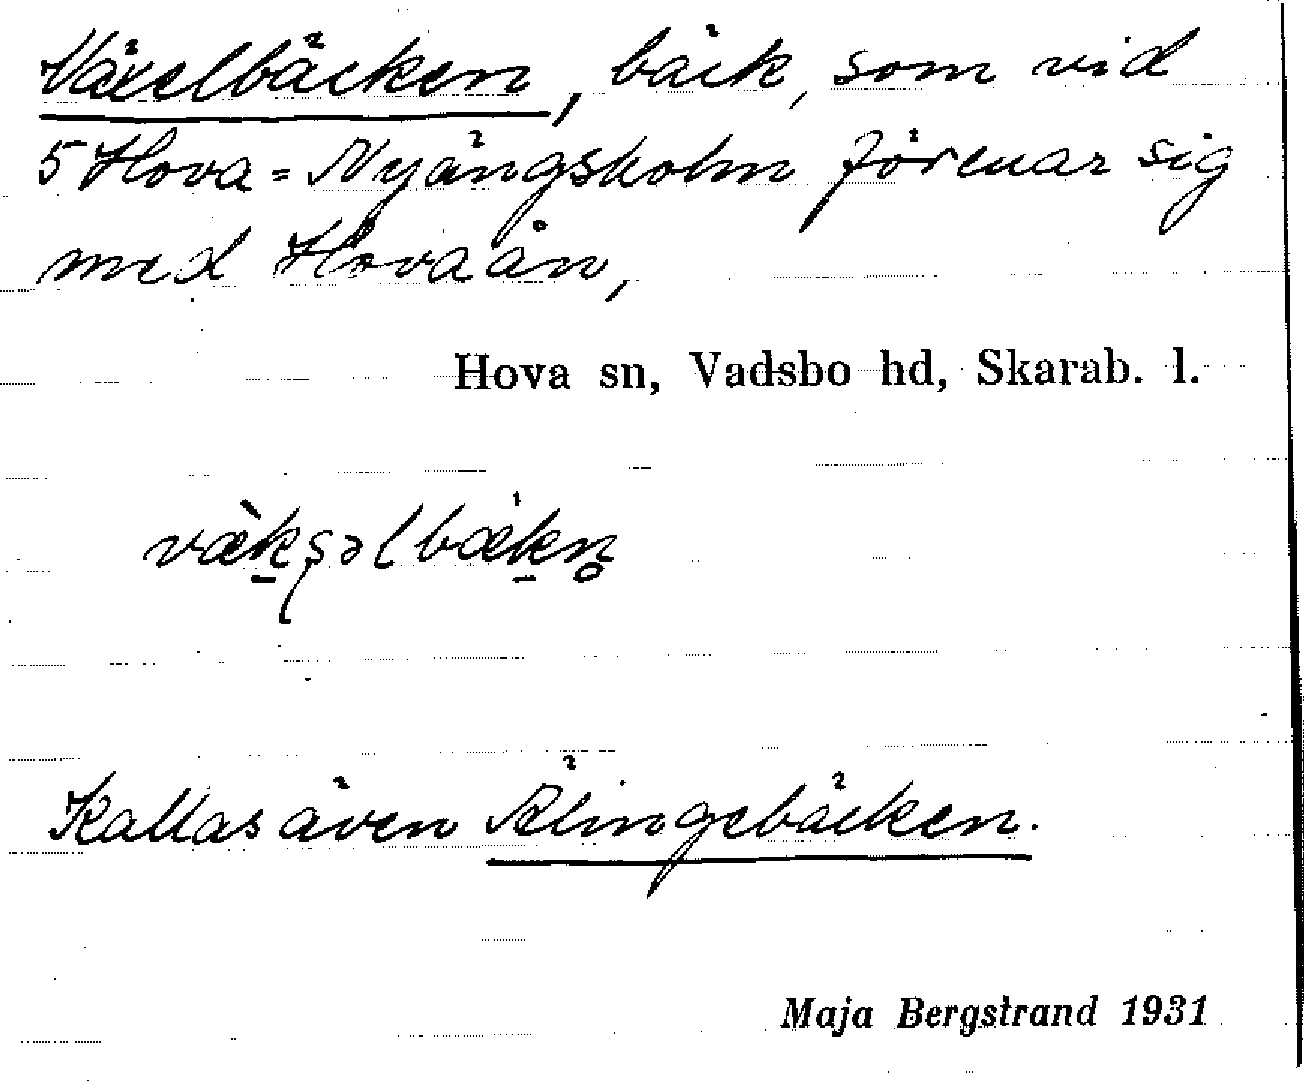 Växelbäcken, bäck, som vid
5 Hova=Nyängsholm förenar sig
med Hovaån,
Hova sn, Vadsbo hd, Skarab. l.
væ̀k̠ʂəlbæk̠n̥
Kallas även Älingebäcken.
Maja Bergstrand 1931